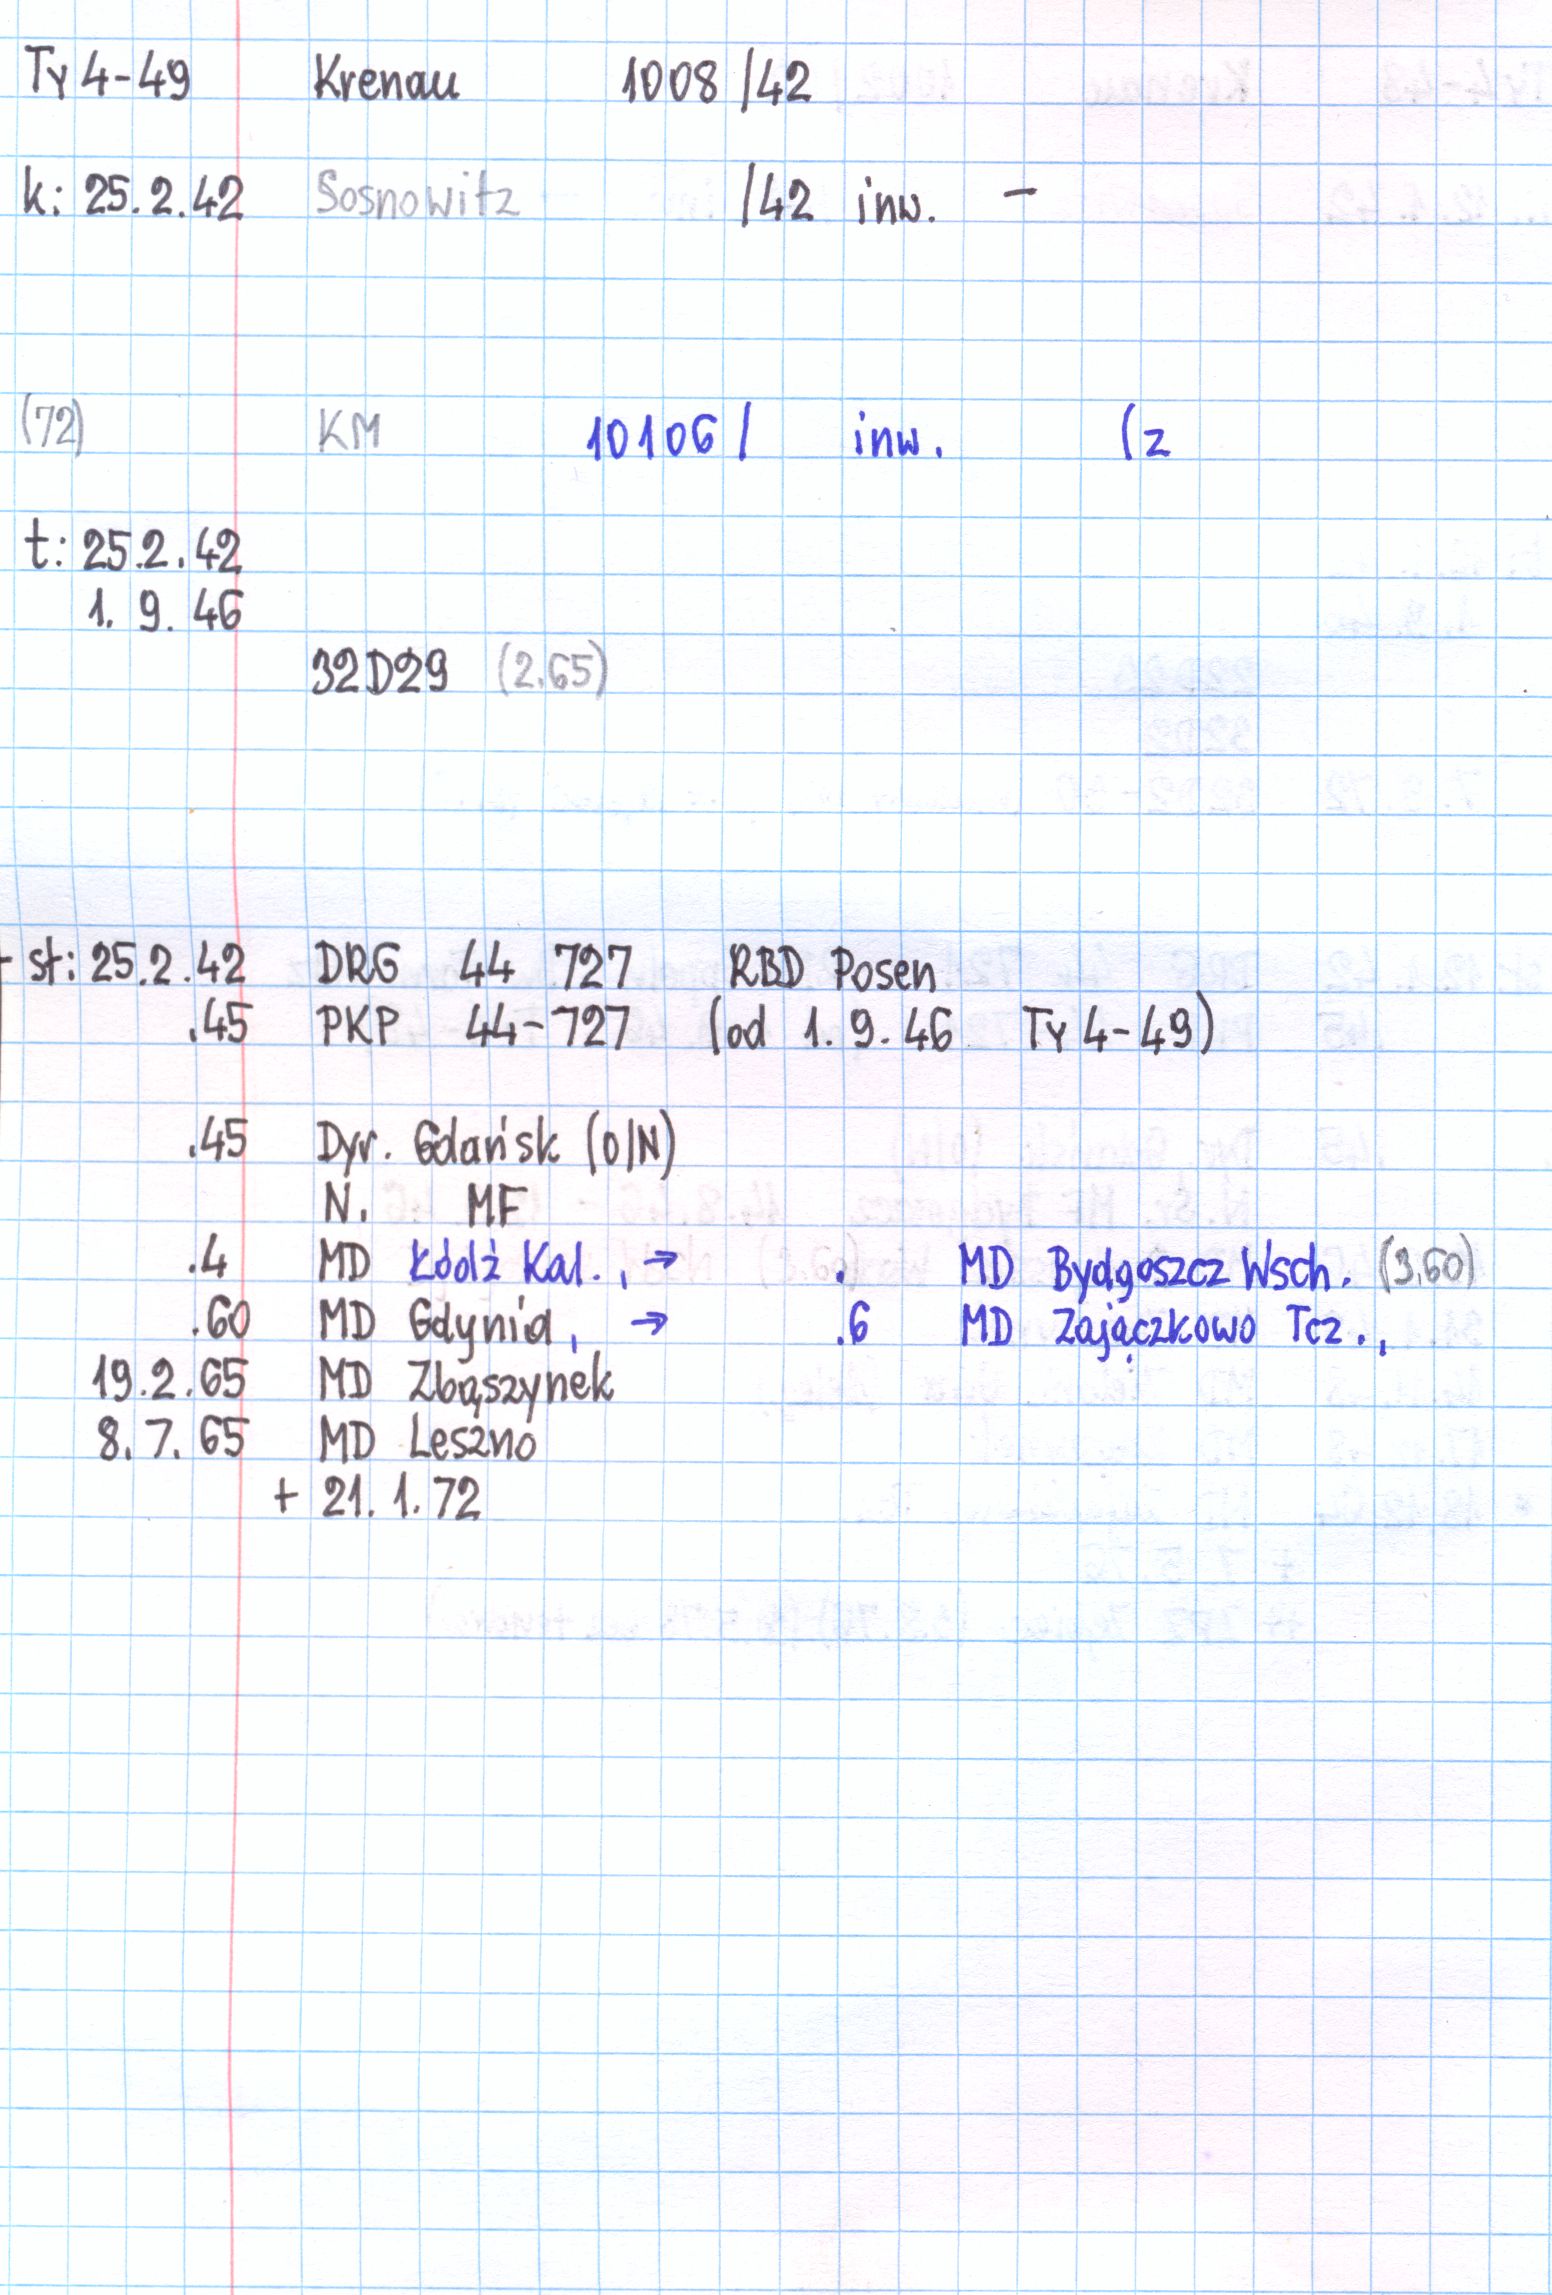 Ty 4-49 Krenau 1008 /42
k: 25.2.42 Sosnowitz /42 inw. –
(72) KM 10106 / inw. (z
t: 25.2.42
1. 9. 46
32D29 (2.65)
st: 25.2.42 DRG 44 727 RBD Posen
.45 PKP 44-727 (od 1. 9. 46 Ty 4-49)
.45 Dyr. Gdańsk (O/N)
N. MF
.4 MD Łódź Kal. , → . MD Bydgoszcz Wsch. (3.60)
.60 MD Gdynia , → .6 MD Zajączkowo Tcz. ,
19.2.65 MD Zbąszynek
8.7.65 MD Leszno
+ 21. 1. 72